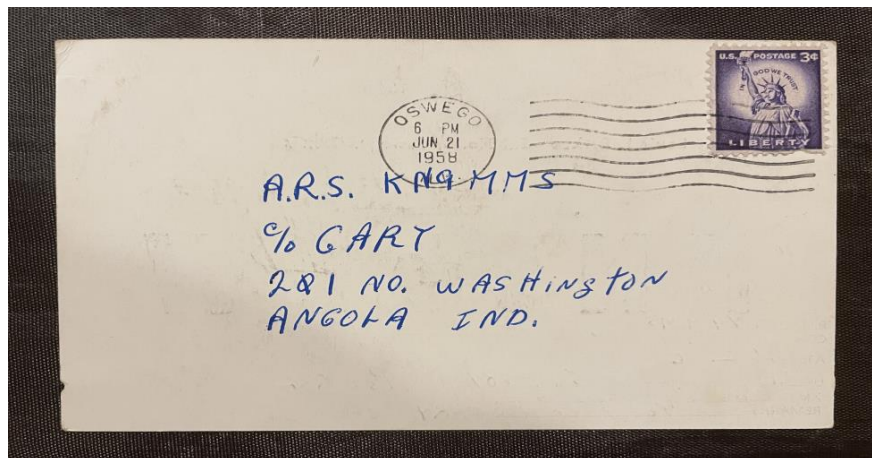 U.S. POSTAGE 3¢
IN GOD WE TRUST
LIBERTY
OSWEGO
6 PM
JUN 21
1958
A.R.S.
℅ GARY
201 NO. WASHINGTON
ANGOLA IND.